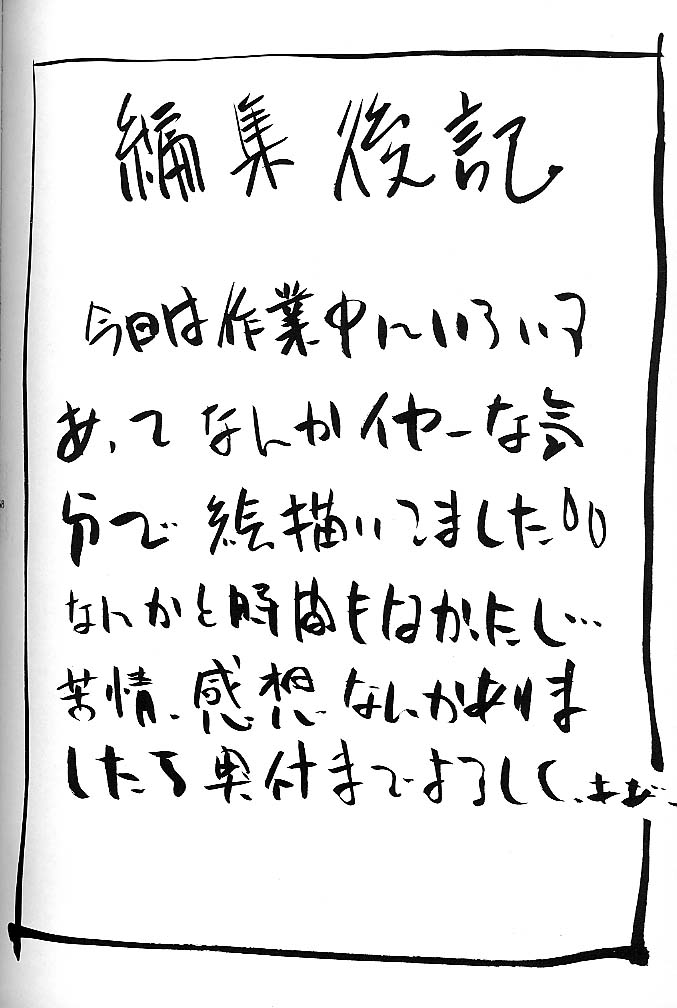 編集後記
今回は作業中にいろいろ
あってなんかイヤーな気
分で絵描いてました00
なんかと時間もなかったし…
苦情、感想なんかありま
したら奥付までよろしく、